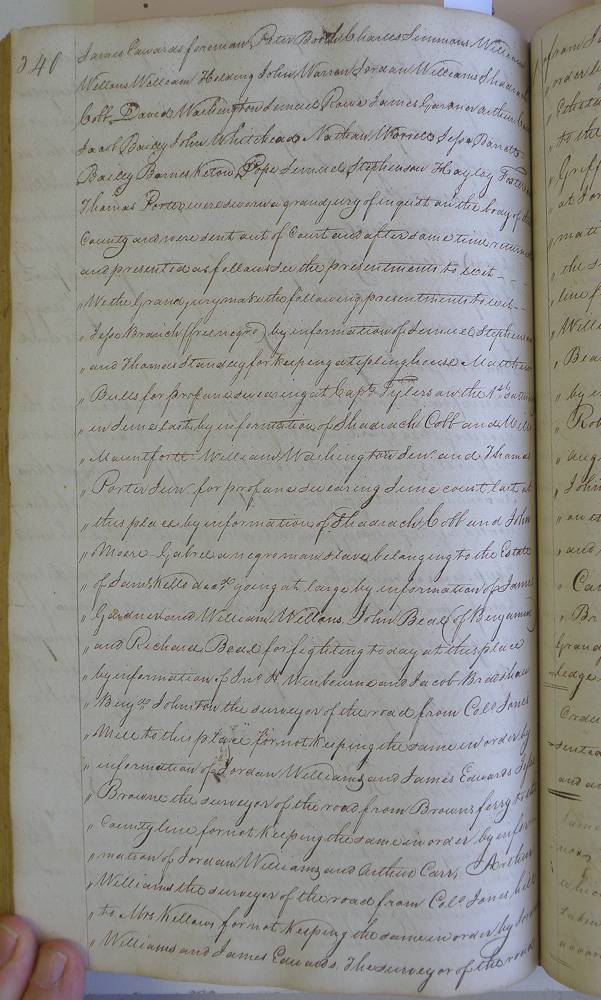 340
James Edwards foreman, Peter Booth Charles Simmons William
Wellons William Holding John Warren Jordan Williams Shadrach
Cobb David Washington Lemuel Rowe James Gardner Arthur
Jacob Bailey John Whitehead Nathan Worrell Jesse Barrett
Bailey Barnes Pope Lemuel Stephenson Hayley
Thomas Porter were sworn a grand jury of inquest on the body of the
County and were sent out of Court and after some time returned
and presented as follows see the presentments to wit
" We the Grand jury make the following presentments to wit
" Jesse Branch (free negro) by information of Lemuel Stephenson
" and Thomas Standley for keeping a tipling house Matthew
" Bulls for profane swearing at Capt Tylers on the 1st
" in June last by information of Shadrach Cobb and Wills
" Mountfort William Washington Sen. and Thomas
" Porter Jun. for profane swearing June court last at
" this place by information of Shadrach Cobb and John
" Moore Gabrel a negro man slave belonging to the Estate
" of Saml Kello decd. going at large by information of James
" Gardner and William Wellons John Beal (of Benjamin)
" and Richard Beal for fighting today at this place
" by information of Jno H Winbourne and Jacob Bradshaw
" Benj Johnston the surveyor of the road from Colo Jones
" Mill to this place for not keeping the same in order by
" information of Jordan Williams and James Edwards Jesse
" Browne the surveyor of the road from Browns ferry to the
" County line for not keeping the same in order by infor
" mation of Jordan Williams and Arthur Carr Arthur
" Williams the surveyor of the road from Colo Jones hill
" to Mrs Kellows for not keeping the same in order by Jordan
" Williams and James Edwards. The surveyor of the road